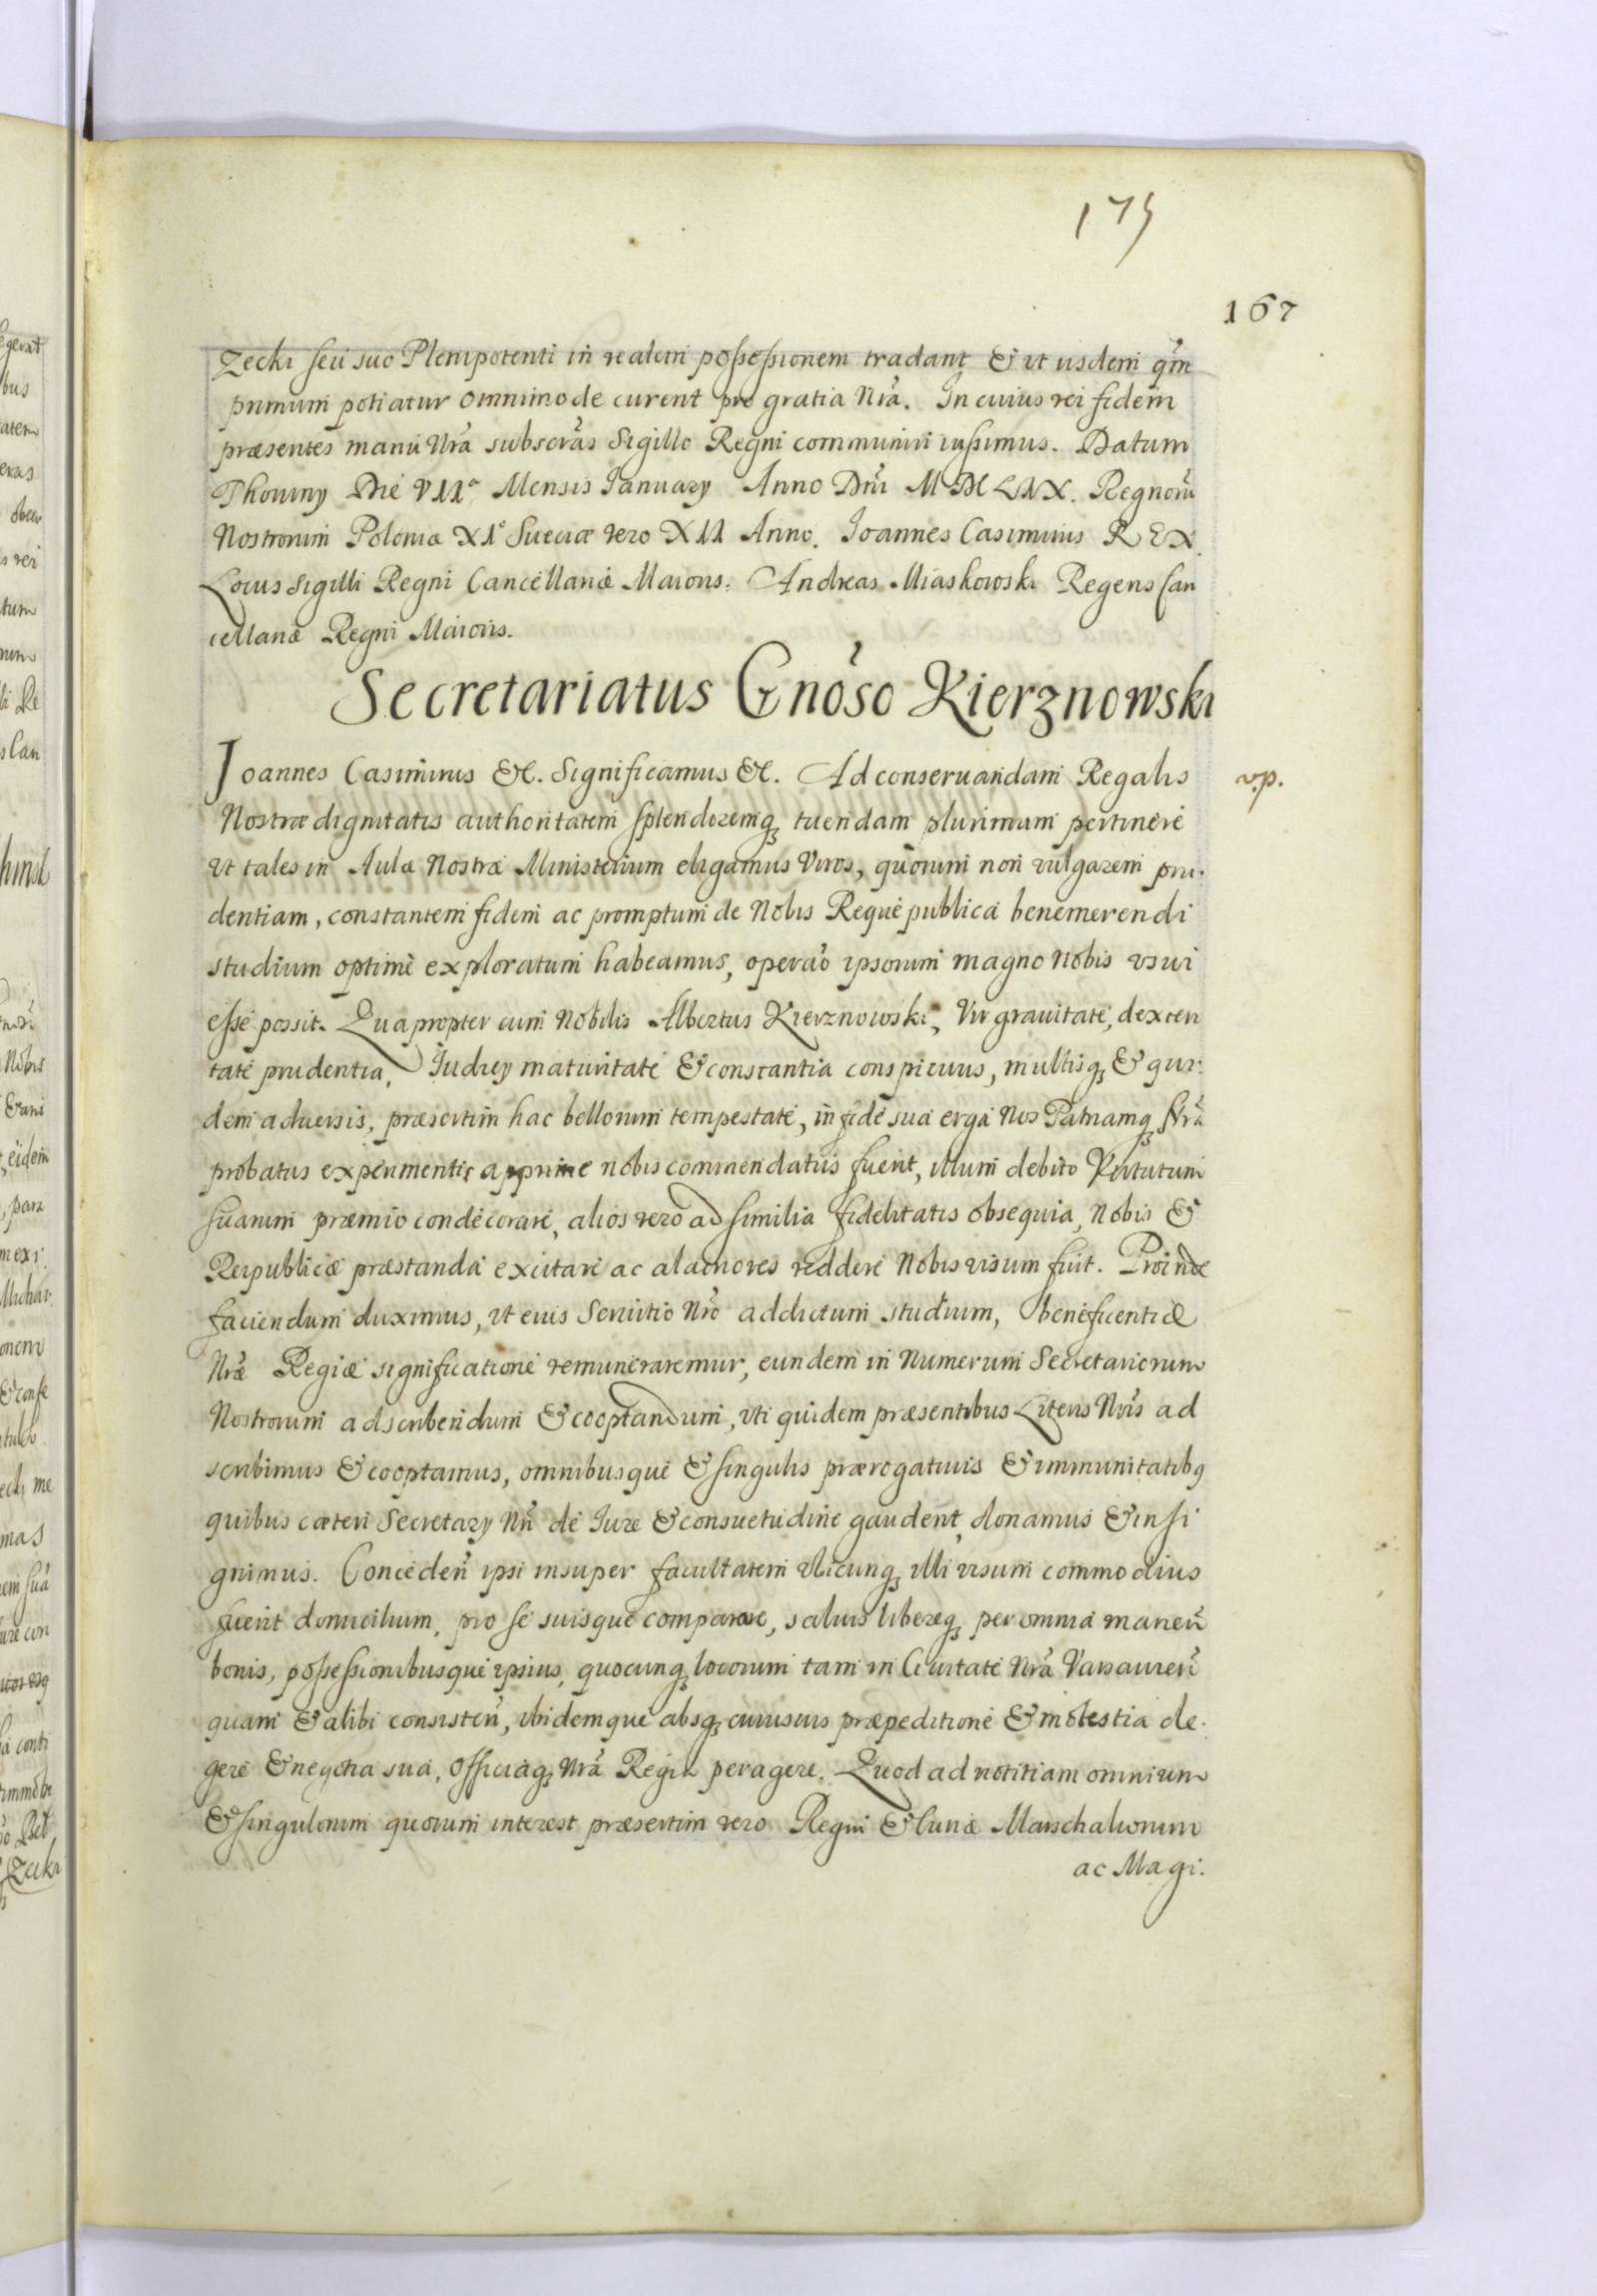 175
167
Zecki seu suo Plenipotenti in realem possessionem tradant & vt iisdem qm̃
primum potiatur omnimode curent pro gratia Nr̃a. In cuius rei fidem
præsentes manu Nr̃a subscrãs Sigillo Regni communiri iussimus. Datum
Thoruny Die VIIᵃ Mensis January Anno Dñi MDCLIX. Regnorũ
Nostrorum Poloniæ XI° Sueciæ vero XII Anno. Joannes Casimirus REX.
Locus Sigilli Regni Cancellariæ Maioris. Andreas Miaskowski Regens Can
cellariæ Regni Maioris.
Secretariatus Gnõso Kierznowski
Joannes Casimirus &c. Significamus &c. Ad conseruandam Regalis
v.p.
Nostræ dignitatis authoritatem splendoremq; tuendam plurimum pertinere
vt tales in Aulæ Nostræ Ministerium eligamus Viros, quorum non vulgarem pru-
dentiam, constantem fidem ac promptum de Nobis Reque publica benemerendi
studium optime exploratum habeamus, operaõ ipsorum magno Nobis vsui
esse possit. Quapropter cum Nobilis Albertus Kierznowski, Vir grauitate, dexteri
tate prudentia, Judicy maturitate & constantia conspicuus, multisq; & qui-
dem aduersis, præsertim hac bellorum tempestate, in fide sua erga Nos Patriamq; Nr̃ã
probatus experimentis apprime nobis commendatus fuerit, illum debito Virtutum
suarum præmio condecorare, alios vero ad similia fidelitatis obsequia, Nobis &
Reipublicæ præstanda excitare ac alacriores reddere Nobis visum fuit. Proinde
faciendum duximus, vt eius Seruitio Nr̃o addictum studium, beneficentiæ
Nr̃æ Regiæ significatione remuneraremur, eundem in Numerum Secretariorum
Nostrorum adscribendum & cooptandum, vti quidem præsentibus Literis Nr̃is ad
scribimus & cooptamus, omnibusque & singulis prærogatiuis & immunitatibq
quibus cæteri Secretary Nr̃i de Jure & consuetudine gaudent, donamus & insi
gnimus. Conceden̄ ipsi insuper facultatem vbicunq; illi visum commodius
fuerit domicilium, pro se suisque comparare, saluis libereq; per omnia maneñ
bonis, possessionibusque ipsius, quocunq; locorum tam in Ciuitate Nr̃a Varsauieñ
quam & alibi consisteñ, ibidemque absq; cuiusuis præpeditione & molestia de-
gere & negotia sua, Officiaq; Nr̃a Regia peragere. Quod ad notitiam omnium
& singulorum quorum interest præsertim vero Regni & Curiæ Marschalcorum
ac Magi: